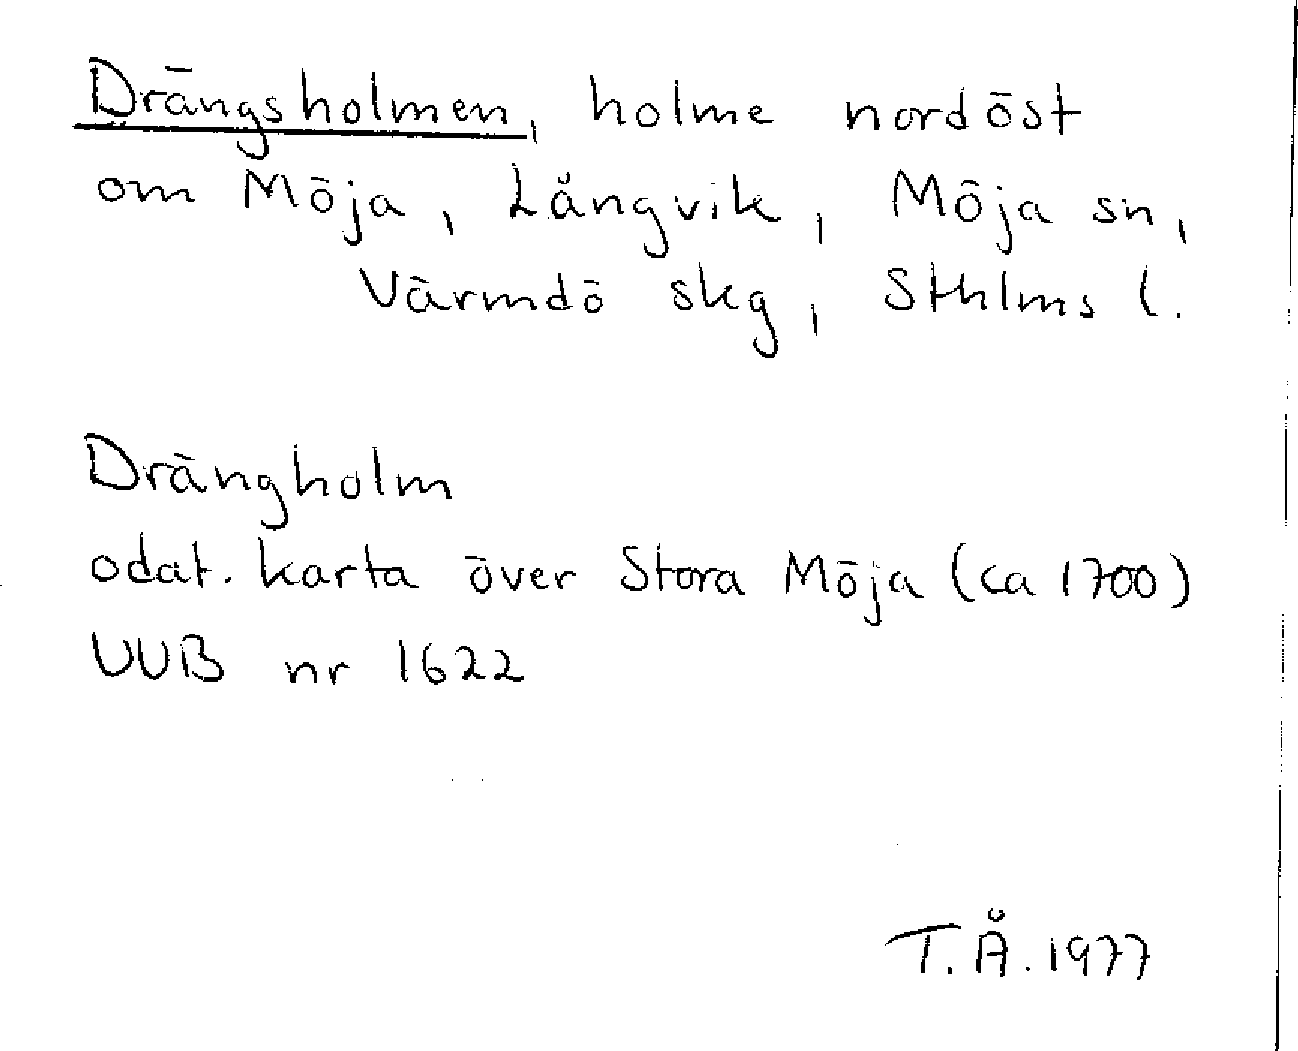 Drängsholmen, holme nordöst
om Möja, Långvik, Möja sn,
Värmdö skg, Sthlms l.
Drängholm
odat. karta över Stora Möja (ca 1700)
UUB nr 1622
T.Å. 1977